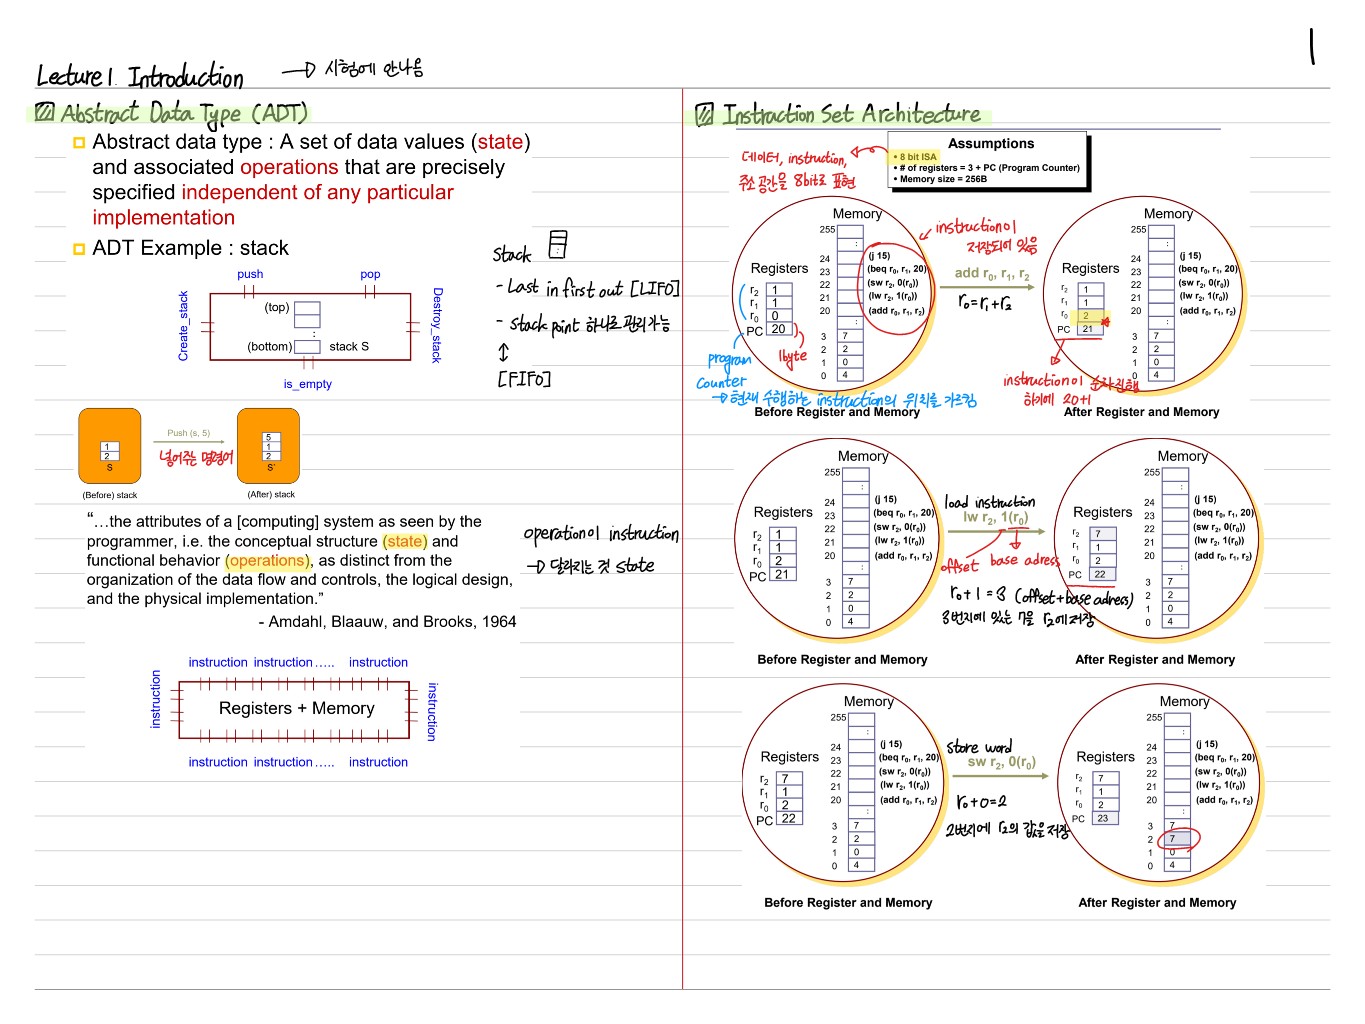 1
Lecture 1. Introduction → 시험에 안나옴
Abstract Data Type (ADT)
Abstract data type : A set of data values (state)
and associated operations that are precisely
specified independent of any particular
implementation
ADT Example : stack
push
pop
Create_stack
(top)
:
(bottom)
stack S
Destroy_stack
is_empty
stack
- Last in first out [LIFO]
- stack point 하나로 관리가능
↕
[FIFO]
1
2
S
(Before) stack
Push (s, 5)
넣어주는 명령어
5
1
2
S'
(After) stack
“…the attributes of a [computing] system as seen by the
programmer, i.e. the conceptual structure (state) and
functional behavior (operations), as distinct from the
organization of the data flow and controls, the logical design,
and the physical implementation.”
- Amdahl, Blaauw, and Brooks, 1964
operation이 instruction
→ 달라지는 것 state
instruction instruction ..... instruction
instruction
Registers + Memory
instruction
instruction instruction ..... instruction
Instruction Set Architecture
Assumptions
• 8 bit ISA
• # of registers = 3 + PC (Program Counter)
• Memory size = 256B
데이터, instruction,
주소공간을 8bit로 표현
Memory
255
:
24 (j 15)
23 (beq r0, r1, 20)
22 (sw r2, 0(r0))
21 (lw r2, 1(r0))
20 (add r0, r1, r2)
:
3 7
2 2
1 0
0 4
Registers
r2 1
r1 1
r0 0
PC 20
1byte
program
counter
→ 현재 수행하는 instruction의 위치를 가르킴
Before Register and Memory
instruction이
저장되어 있음
add r0, r1, r2
r0=r1+r2
Memory
255
:
24 (j 15)
23 (beq r0, r1, 20)
22 (sw r2, 0(r0))
21 (lw r2, 1(r0))
20 (add r0, r1, r2)
:
3 7
2 2
1 0
0 4
Registers
r2 1
r1 1
r0 2
PC 21
instruction이 순차진행
하기에 20+1
After Register and Memory
Memory
255
:
24 (j 15)
23 (beq r0, r1, 20)
22 (sw r2, 0(r0))
21 (lw r2, 1(r0))
20 (add r0, r1, r2)
:
3 7
2 2
1 0
0 4
Registers
r2 1
r1 1
r0 2
PC 21
Before Register and Memory
load instruction
lw r2, 1(r0)
offset base adress
r0+1=3 (offset+base adress)
3번지에 있는 7을 r2에 저장
Memory
255
:
24 (j 15)
23 (beq r0, r1, 20)
22 (sw r2, 0(r0))
21 (lw r2, 1(r0))
20 (add r0, r1, r2)
:
3 7
2 2
1 0
0 4
Registers
r2 7
r1 1
r0 2
PC 22
After Register and Memory
Memory
255
:
24 (j 15)
23 (beq r0, r1, 20)
22 (sw r2, 0(r0))
21 (lw r2, 1(r0))
20 (add r0, r1, r2)
:
3 7
2 2
1 0
0 4
Registers
r2 7
r1 1
r0 2
PC 22
Before Register and Memory
store word
sw r2, 0(r0)
r0+0=2
2번지에 r2의 값을 저장
Memory
255
:
24 (j 15)
23 (beq r0, r1, 20)
22 (sw r2, 0(r0))
21 (lw r2, 1(r0))
20 (add r0, r1, r2)
:
3 7
2 7
1 0
0 4
Registers
r2 7
r1 1
r0 2
PC 23
After Register and Memory